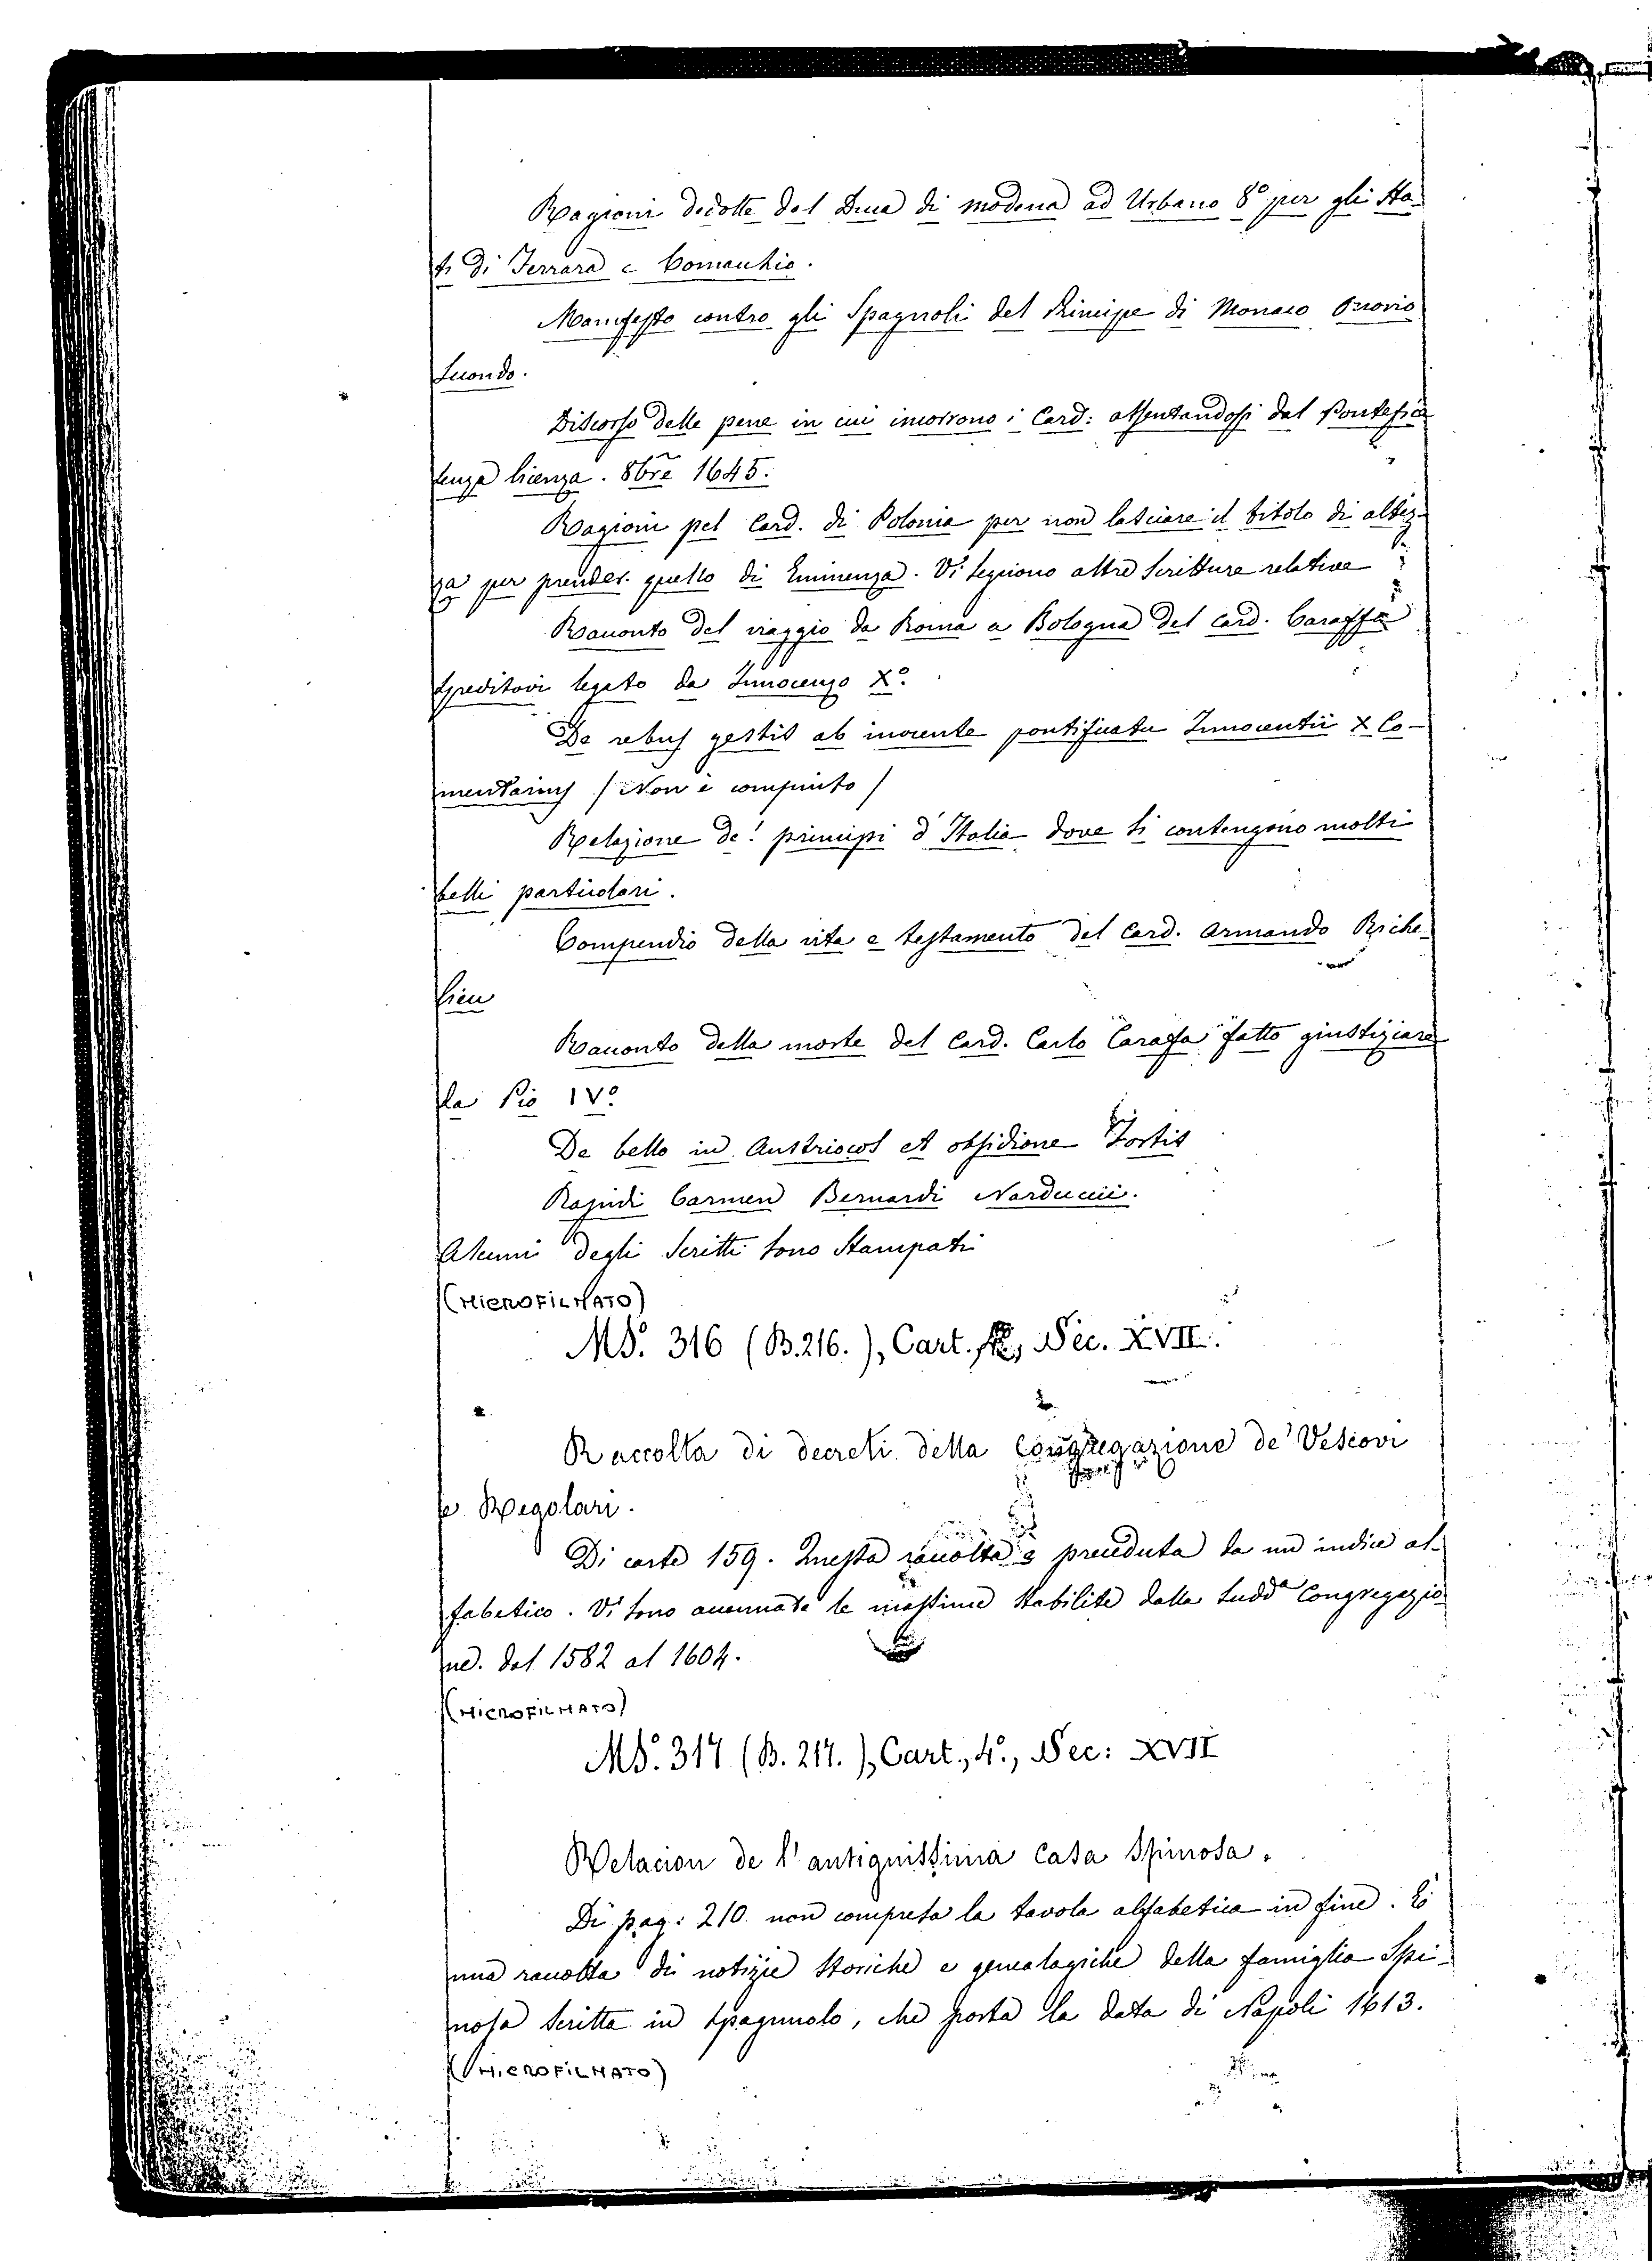 Ragioni dedotte dal Duca di Modena ad Urbano 8° per gli Sta-
ti di Ferrara e Comacchio.
Manifesto contro gli Spagnoli del Principe di Monaco Onorio
Secondo.
Discorso delle pene in cui incorrono i Card: assentandosi dal Pontefice
senza licenza. 8bre 1645.
Ragioni pel Card. di Polonia per non lasciare il titolo di altez-
za per prender quello di Eminenza. Vi seguono altre scritture relative
Racconto del viaggio da Roma a Bologna del Card. Caraffa
speditovi legato da Innocenzo X°.
De rebus gestis ab ineunte pontificatu Innocentii X Co-
mentarius / Non è compiuto /
Relazione de' principi d'Italia dove si contengono molti
belli particolari.
Compendio della vita e testamento del Card. Armando Riche-
lieu
Racconto della morte del Card. Carlo Carafa fatto giustiziare
da Pio IV°
De bello in Austriacos et obsidione Fortis
Rapidi Carmen Bernardi Narducci.
Alcuni degli Scritti sono Stampati
(MICROFILMATO)
MS. 316 (B.216.), Cart. Sec. XVII.
Raccolta di decreti della Congregazione de' Vescovi
e Regolari.
Di carte 159. Questa raccolta è preceduta da un indice al-
fabetico. Vi sono accennate le massime stabilite dalla sudda Congregazio-
ne. dal 1582 al 1604.
(MICROFILMATO)
MS. 317 (B. 217.), Cart., 4°, Sec: XVII
Relacion de l'antiquissima Casa Spinosa.
Di pag: 210 non compresa la tavola alfabetica in fine. È
una raccolta di notizie storiche e genealogiche della famiglia Spi-
nosa scritta in Spagnuolo, che porta la data di Napoli 1613.
(MICROFILMATO)